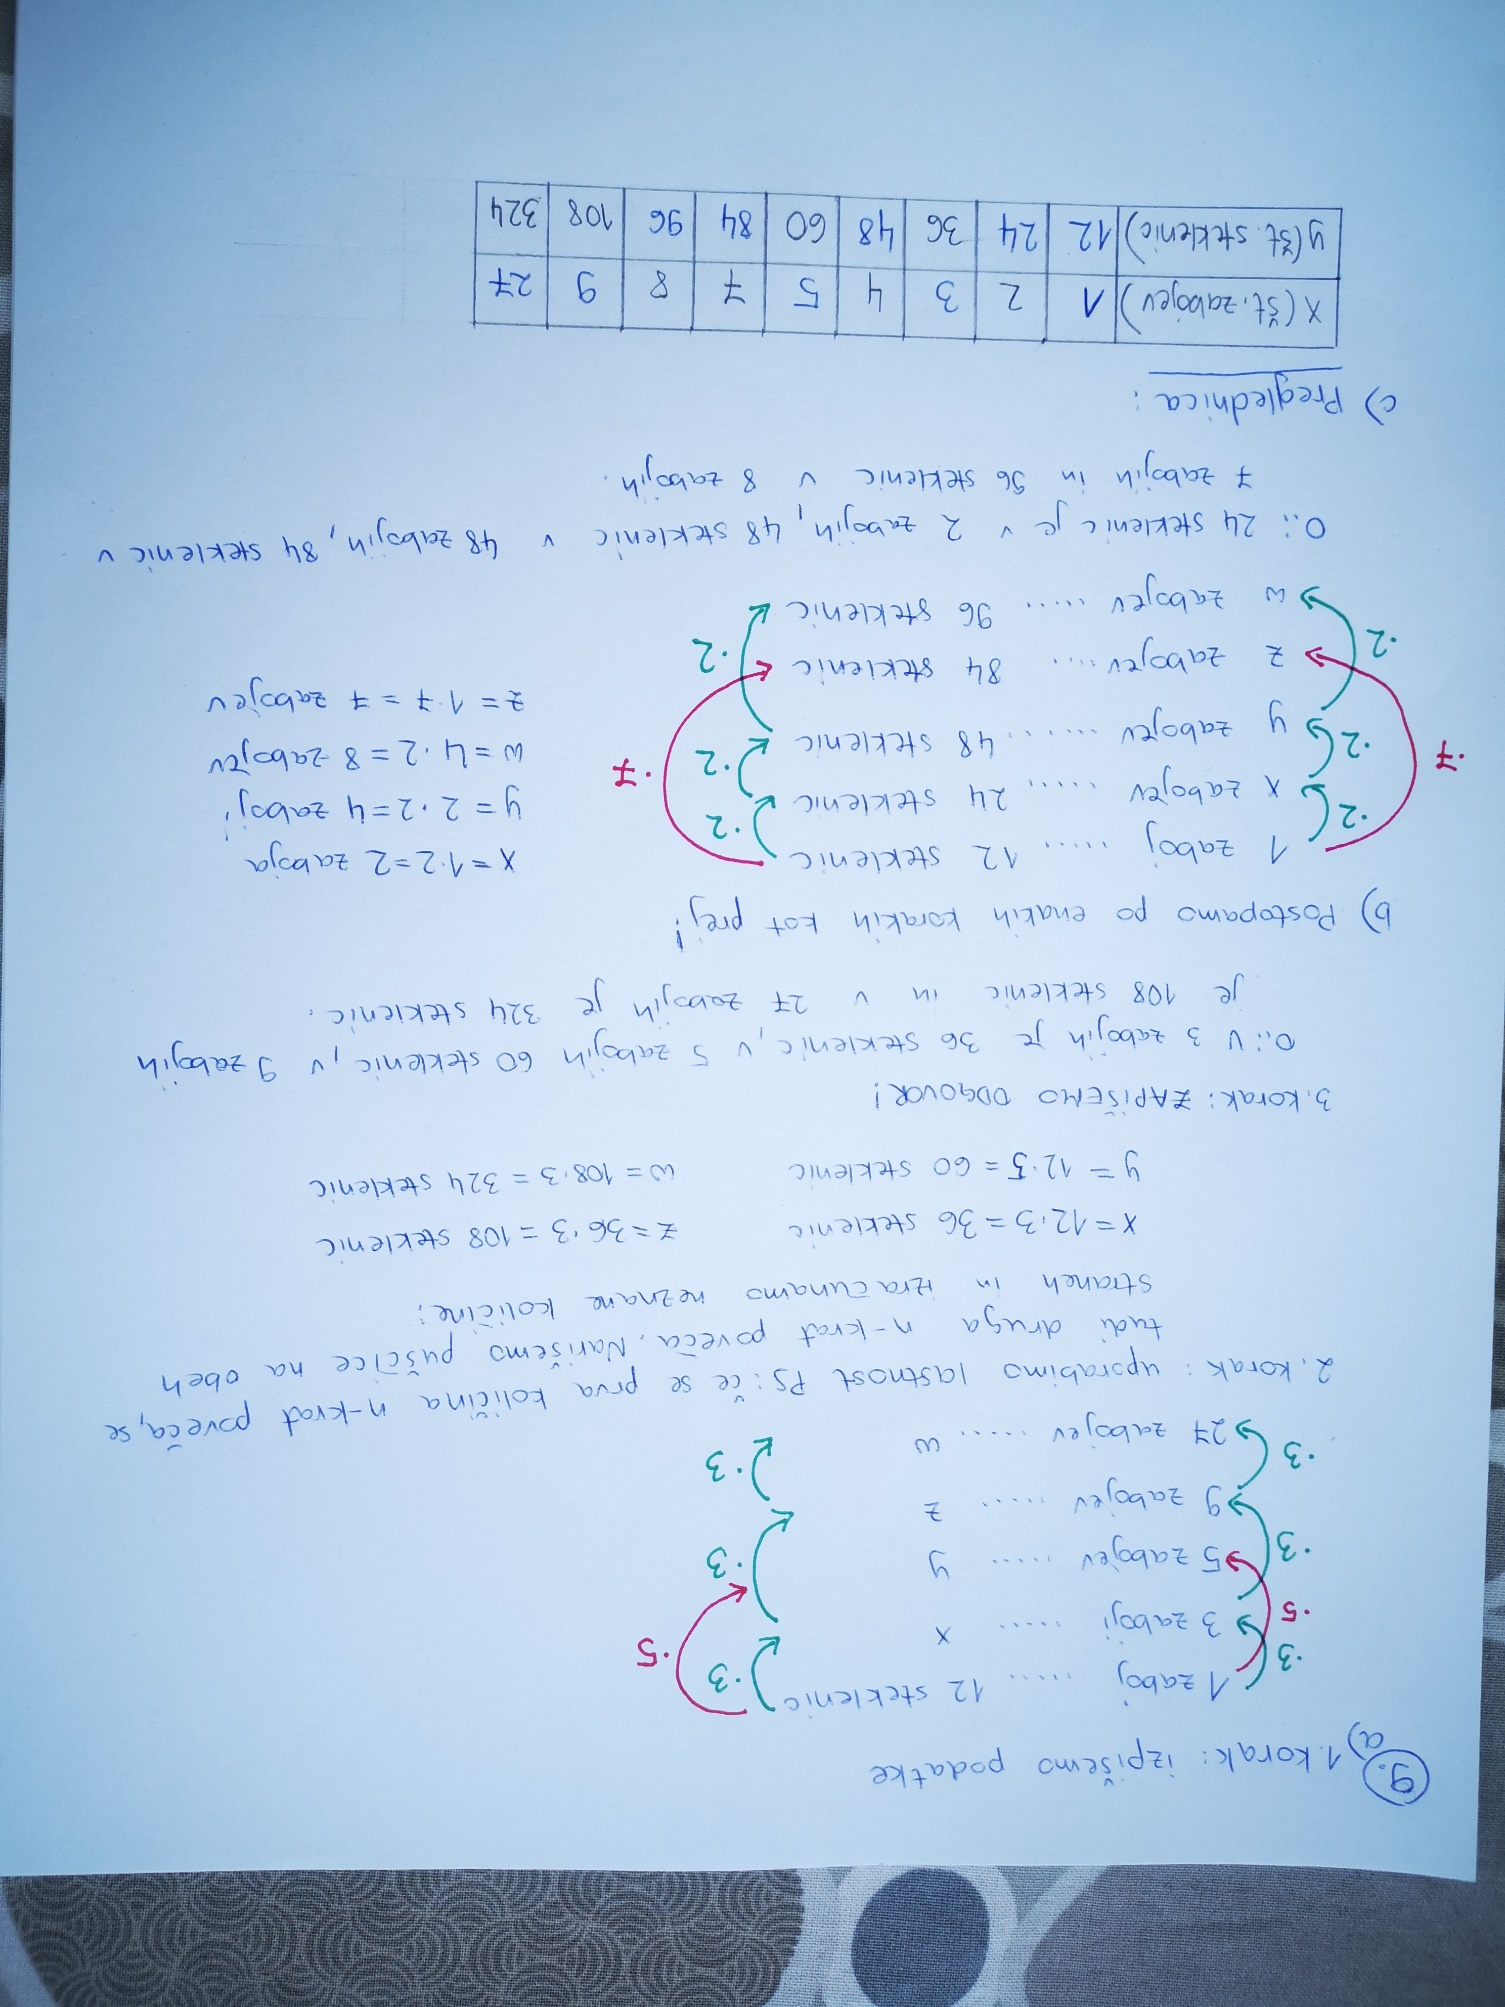 9.
a) 1. korak: izpišemo podatke
1 zaboj ..... 12 steklenic
3 zaboji ..... x
5 zabojev ..... y
9 zabojev ..... z
27 zabojev ..... w
·3 ·5 ·3 ·3
·3 ·5 ·3 ·3
2. korak: uporabimo lastnost PS: če se prva količina n-krat poveča, se
tudi druga n-krat poveča. Narišemo puščice na obeh
straneh in izračunamo neznane količine:
x = 12·3 = 36 steklenic z = 36·3 = 108 steklenic
y = 12·5 = 60 steklenic w = 108·3 = 324 steklenic
3. korak: ZAPIŠEMO ODGOVOR!
O.: V 3 zabojih je 36 steklenic, v 5 zabojih 60 steklenic, v 9 zabojih
je 108 steklenic in v 27 zabojih je 324 steklenic.
b) Postopamo po enakih korakih kot prej!
1 zaboj ..... 12 steklenic
x zabojev ..... 24 steklenic
y zabojev ....... 48 steklenic
z zabojev ..... 84 steklenic
w zabojev ..... 96 steklenic
·2 ·2 ·7 ·2
·2 ·2 ·7 ·2
x = 1·2 = 2 zaboja
y = 2·2 = 4 zaboji
w = 4·2 = 8 zabojev
z = 1·7 = 7 zabojev
O.: 24 steklenic je v 2 zabojih, 48 steklenic v 48 zabojih, 84 steklenic v
7 zabojih in 96 steklenic v 8 zabojih.
c) Preglednica:
x (št. zabojev) 1 2 3 4 5 7 8 9 27
y (št. steklenic) 12 24 36 48 60 84 96 108 324